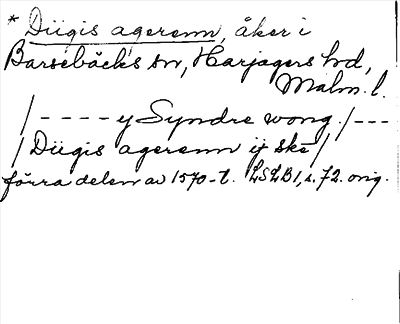 * Dügis agerenn, åker i
Barsebäcks sn, Harjagers hd,
Malm. l.
/ - - - - y Syndre wong. / - - -
/ Dügis agerenn ij skē /
förra delen av 1570-t. LSLB 1, s. 72. orig.